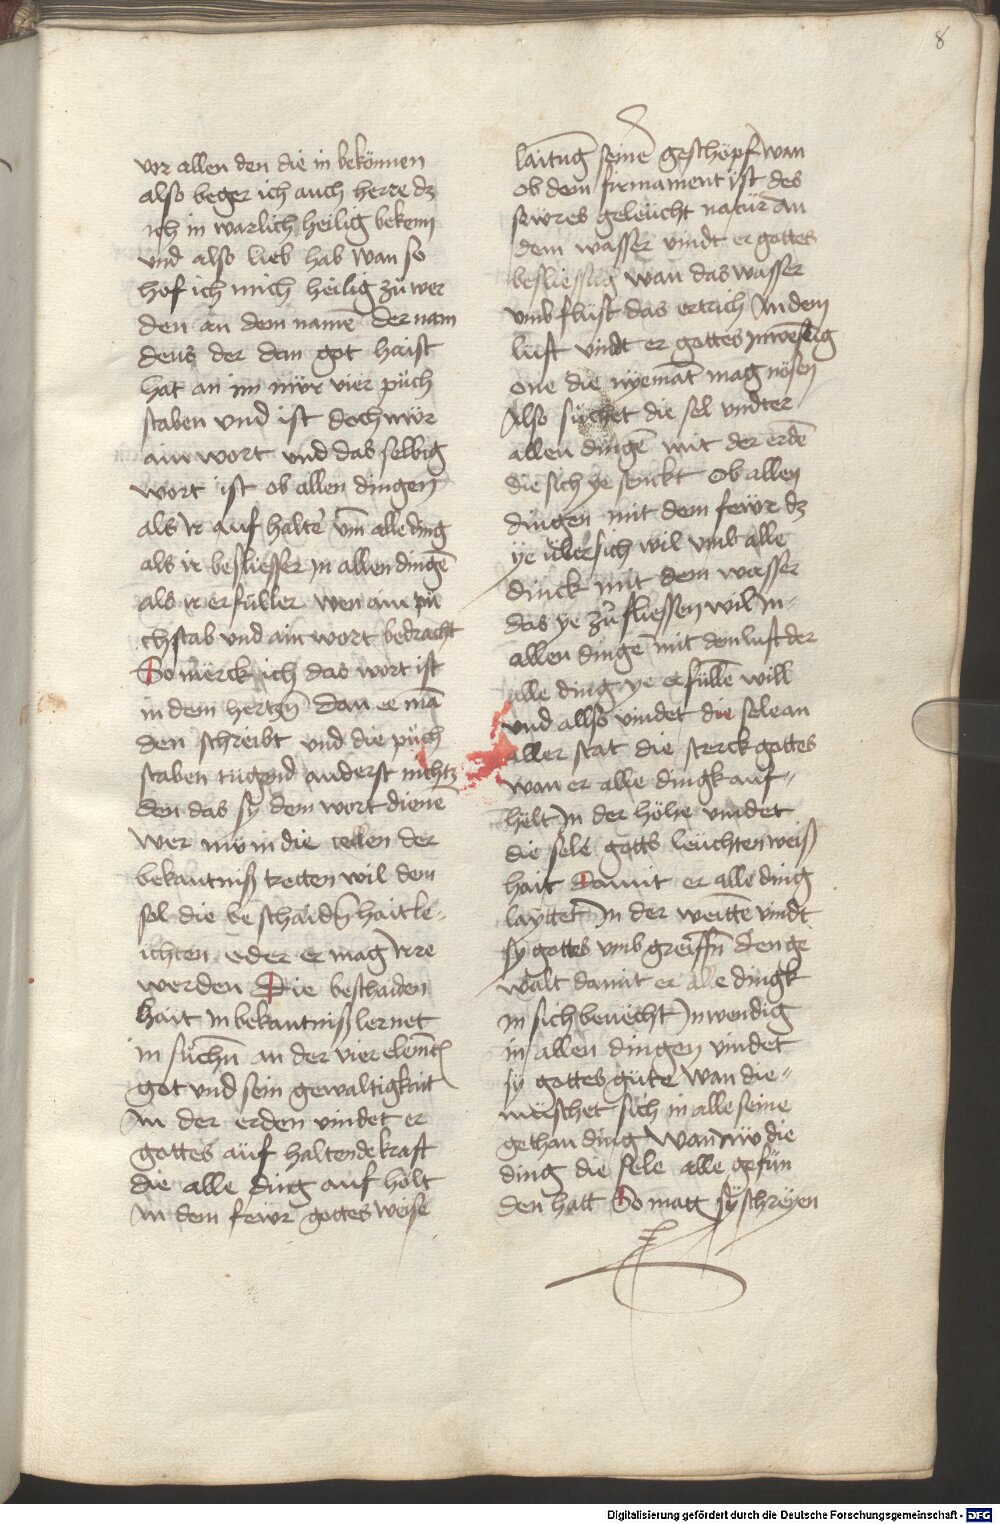 8
vor allen den die in bekönnen
also beger ich auch herre dz
ich in warlich heilig bekenn
und also lieb hab wan so
hof ich mich heilig zů wer
den an dem namē der nam
deus der dan got haist
hat an im nüvr vier püch
staben und ist doch nüvr
ain wort und das selbig
wort ist ob allen dingen
als ir auf halter um̄ alle ding
als ir besliesser in allen dingē
als ir erfüller wen ain pů
chstab und ain wort bedracht
So mërck ich das wort ist
in dem hertzn̄ dan ee mā
den schreibt und die půch
staben tugend anderst nichtz
den das sy dem wort dienē
wer nův in die cellen der
bekantniß tretten wil dem
sol die beschaidn̄hait le-
ichten oder er mag irre
werden Die beschaiden
hait in bekantniß lernet
in sůchn̄ an der vier elemēt
got und sein gewaltigkait
In der erden vindet er
gottes auf haltende kraft
die alle ding auf hölt
In dem fewr gottes weise
laitung seinē geschöpf wan
ob dem firmament ist des
fewres geleücht natür An
dem wasser vindt er gottes
besliessung wan das wasser
umbflüst das ertrich In dem
luft vindt er gottes inwesēig
one die nyemāt mag nösen
Also süchet die sel undter
allen dingē mit der erdē
die sich ye senckt Ob allen
dingen mit dem fewr dz
ye übersich wil umb alle
dinck mit dem wasser
das ye zů fliessen wil In-
allen dingē mit dem luft der
alle ding ye erfüllē will
und allso vindet die sele an
aller stat die sterck gottes
wan er alle dingk auf-
helt In der höhe vindet
die sele gotts leüchten weiß
hait Damit er alle ding
layttet In der weittē vindt
sy gottes umbgreiffn̄ den ge
walt damit er alle dingk
in sich beuecht Inwendig
in allen dingen vindet
sy gottes güte wan die-
müschet sich in alle seine
gethan ding Wan nův die
ding die sele alle gefün
den hatt So mag sy schreyen
Digitalisierung gefördert durch die Deutsche Forschungsgemeinschaft - DFG